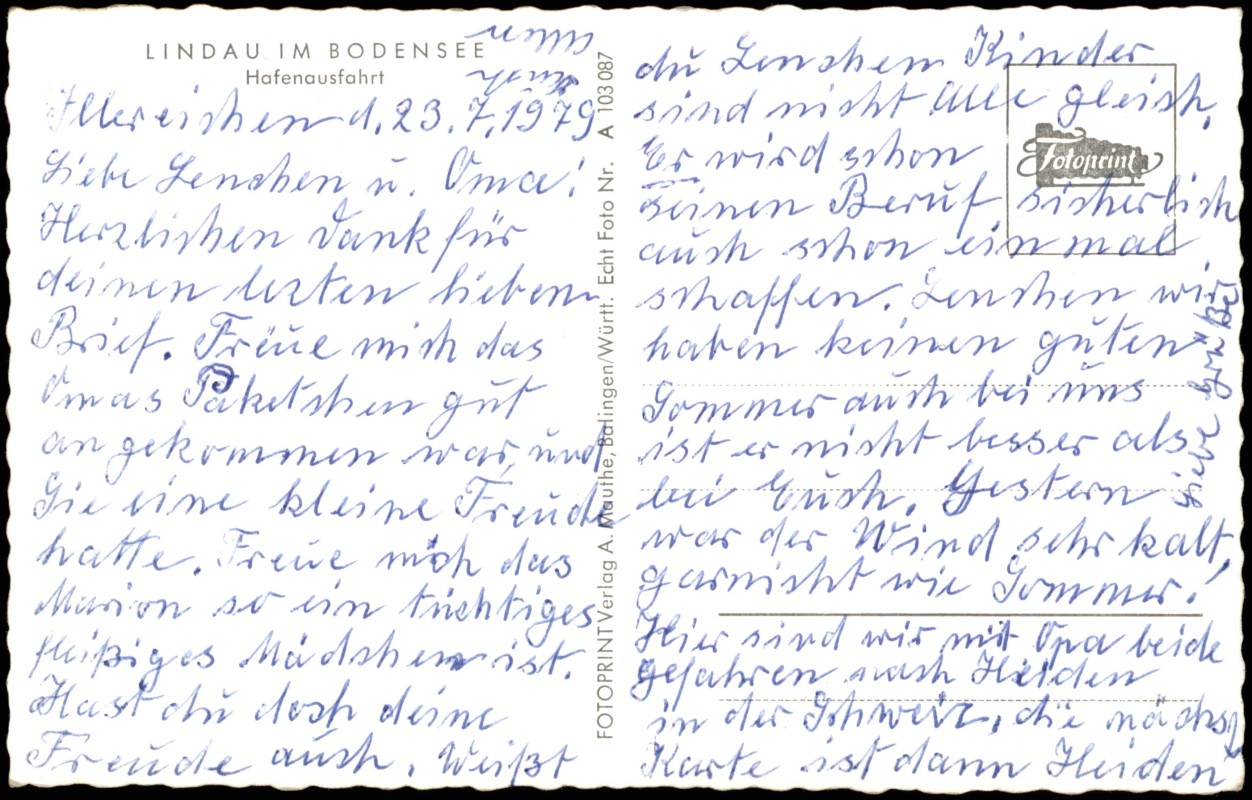 LINDAU IM BODENSEE
Hafenausfahrt
Illereichen d. 23.7.1979
Liebe Lenchen u. Oma!
Herzlichen Dank für
deinen lezten lieben
Brief. Freue mich das
Omas Paketchen gut
angekommen war, und
Sie eine kleine Freude
hatte. Freue mich das
Marion so ein tüchtiges
fleißiges Mädchen ist.
Hast du doch deine
Freude auch. Weißt
FOTOPRINT Verlag A. Mauthe, Balingen/Württ. Echt Foto Nr. A 103 087
du Lenchen Kinder
sind nicht Alle gleich.
Er wird schon
seinen Beruf sicherlich
auch schon einmal
schaffen. Lenchen wir
haben keinen guten
Sommer auch bei uns
ist er nicht besser als
bei Euch. Gestern
war der Wind sehr kalt,
garnicht wie Sommer!
Hier sind wir mit Opa beide
gefahren nach Heiden
in der Schweiz, die nächst
Karte ist dann Heiden
Fotoprint
Liebe Grüße